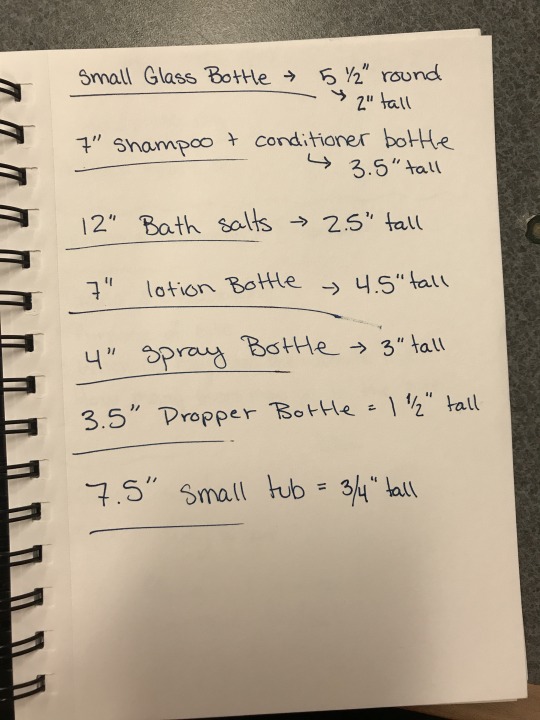 Small Glass Bottle → 5 ½" round
↘ 2" tall
7" Shampoo + conditioner bottle
↳ 3.5" tall
12" Bath salts → 2.5" tall
7" lotion Bottle → 4.5" tall
4" Spray Bottle → 3" tall
3.5" Dropper Bottle = 1 ½" tall
7.5" small tub = 3/4" tall